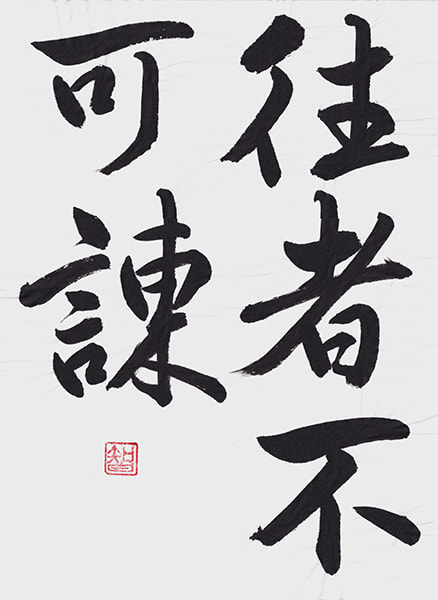 往者不
可諌
智